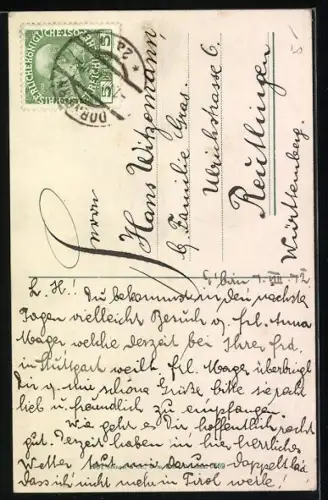 KAISERLICHE KÖNIGLICHE ÖSTERREICHISCHE POST
5 5
DORNBIRN
Herrn
Hans Witzemann,
b/ Familie Gras.
Ulrichstrasse 6.
Reutlingen
Württemberg.
D'birn 7. VII 12.
L. H.! Du bekommst in den nächsten
Tagen vielleicht Besuch v. Frl. Anna
Mager welche derzeit bei Ihrer
in Stuttgart weilt. Frl. Mager überbringt
Dir v. mir schöne Grüße bitte sie recht
lieb u. freundlich zu empfangen.
Wie geht es Dir hoffentlich recht
gut. Derzeit haben wir hier herrliches
Wetter tut mir darum doppelt leid
dass ich nicht mehr in Tirol weile!